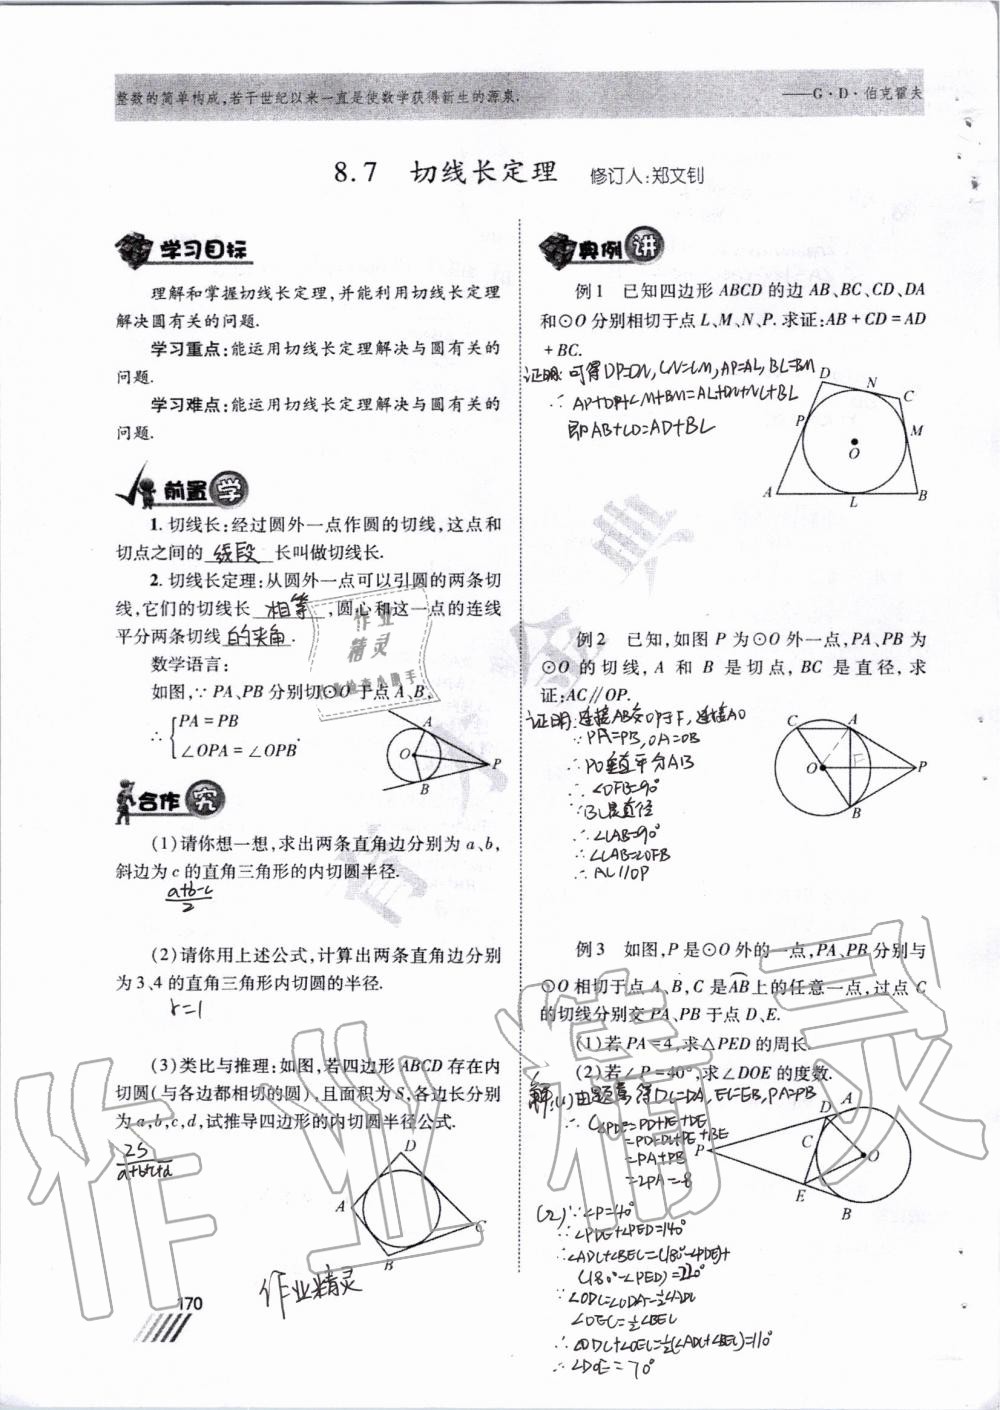 整数的简单构成,若干世纪以来一直是使数学获得新生的源泉.
——G·D·伯克霍夫
8.7 切线长定理 修订人:郑文钊
学习目标
理解和掌握切线长定理,并能利用切线长定理
解决圆有关的问题.
学习重点:能运用切线长定理解决与圆有关的
问题.
学习难点:能运用切线长定理解决与圆有关的
问题.
前置学
1. 切线长:经过圆外一点作圆的切线,这点和
切点之间的 线段 长叫做切线长.
2. 切线长定理:从圆外一点可以引圆的两条切
线,它们的切线长 相等 ,圆心和这一点的连线
平分两条切线 的夹角 .
数学语言:
如图,∵ PA、PB 分别切⊙O 于点 A、B,
∴ { PA = PB
∠OPA = ∠OPB .
A
O
P
B
合作究
(1)请你想一想,求出两条直角边分别为 a、b,
斜边为 c 的直角三角形的内切圆半径.
a+b-c
2
(2)请你用上述公式,计算出两条直角边分别
为 3、4 的直角三角形内切圆的半径.
r=1
(3)类比与推理:如图,若四边形 ABCD 存在内
切圆(与各边都相切的圆),且面积为 S,各边长分别
为 a,b,c,d,试推导四边形的内切圆半径公式.
2S
a+b+c+d
D
A
C
B
作业精灵
170
典例讲
例1 已知四边形 ABCD 的边 AB、BC、CD、DA
和⊙O 分别相切于点 L、M、N、P. 求证:AB + CD = AD
+ BC.
证明:可得DP=DN,CN=CM,AP=AL,BL=BM
∴ AP+DP+CM+BM=AL+DN+NC+BL
即AB+CD=AD+BC
D
N
C
P
M
O
A
L
B
例2 已知,如图 P 为⊙O 外一点,PA、PB 为
⊙O 的切线, A 和 B 是切点, BC 是直径, 求
证:AC∥OP.
证明:连接AB交OP于F,连接AO
∵PA=PB,OA=OB
∴PO垂直平分AB
∴∠OFB=90°
∵BC是直径
∴∠CAB=90°
∴∠CAB=∠OFB
∴AC//OP
C
A
O
F
P
B
例3 如图,P 是⊙O 外的一点,PA、PB 分别与
⊙O 相切于点 A、B,C 是AB上的任意一点,过点 C
的切线分别交 PA、PB 于点 D、E.
(1)若 PA = 4,求△PED 的周长.
(2)若∠P = 40°,求∠DOE 的度数.
解:(1)由题意得DC=DA,EC=EB,PA=PB
∴C△PDE=PD+PE+DE
=PD+DC+PE+BE
=PA+PB
=2PA=8
(2)∵∠P=40°
∴∠PDE+∠PED=140°
∴∠ADC+∠BEC=(180°-∠PDE)+
(180°-∠PED)=220°
∵∠ODC=∠ODA=½∠ADC
∠OEC=½∠BEC
∴∠ODC+∠OEC=½(∠ADC+∠BEC)=110°
∴∠DOE=70°
D
A
C
P
O
E
B
作业精灵
作业
精灵
作业检查小助手